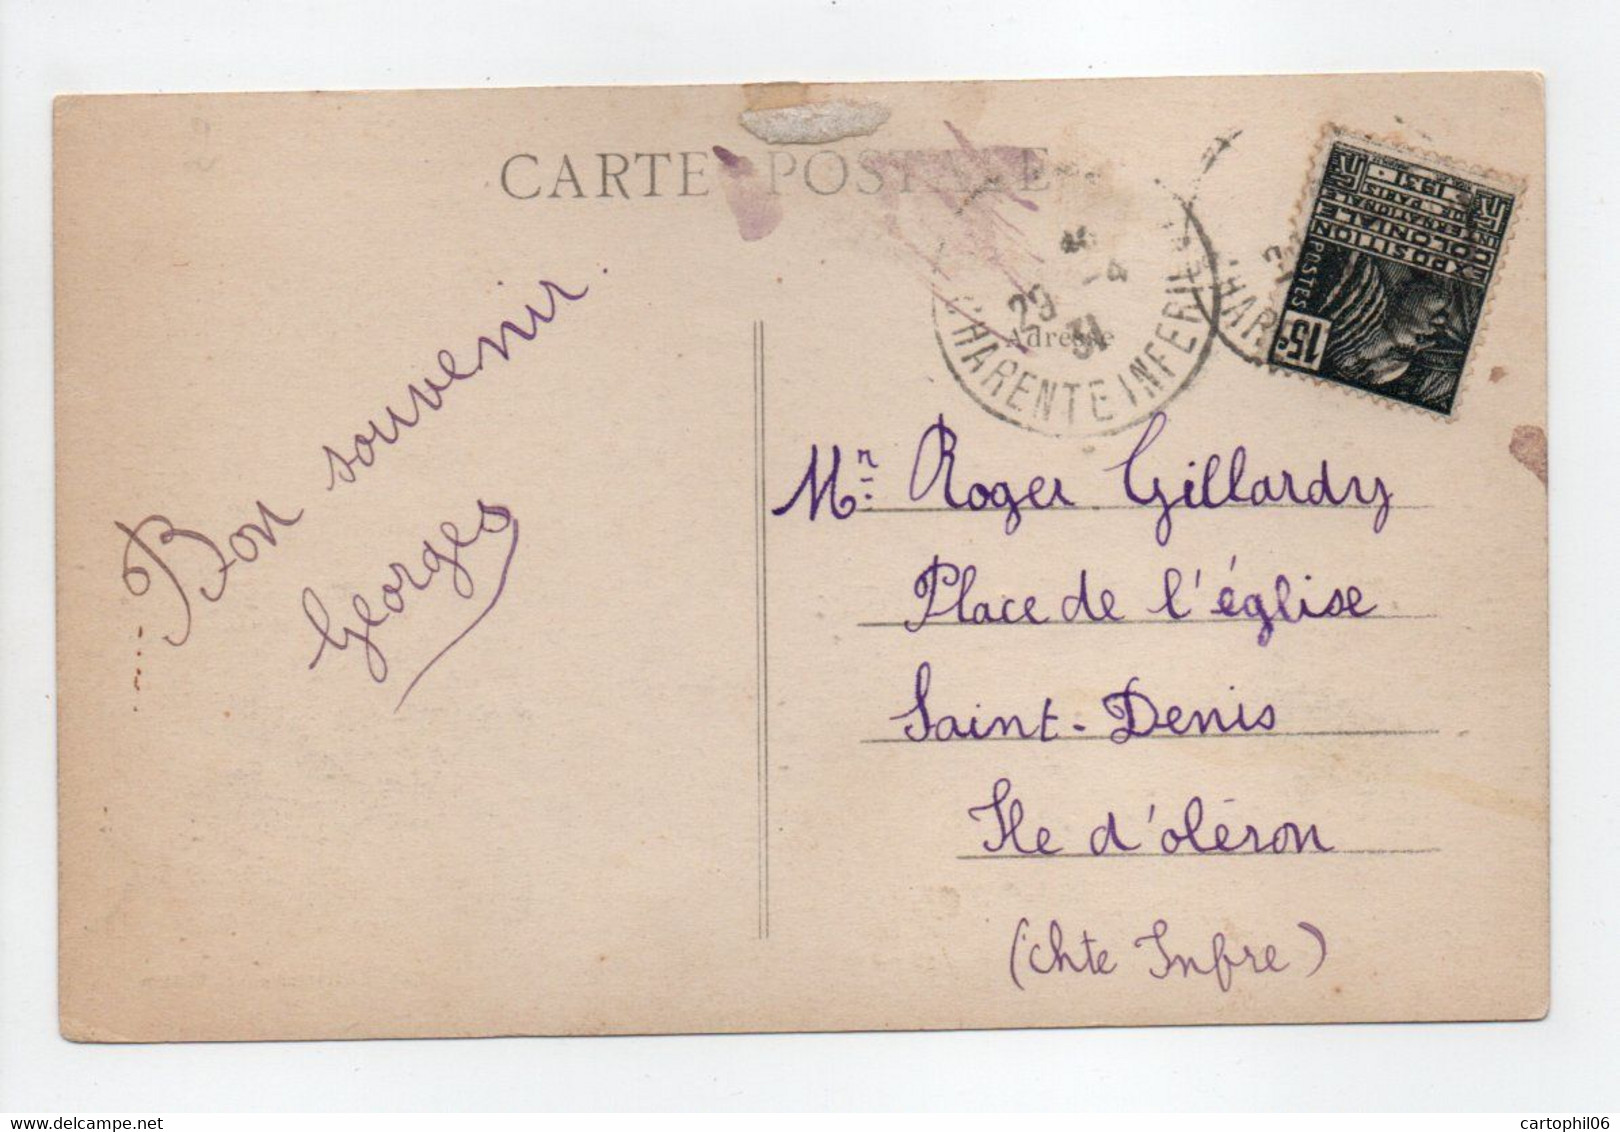 CARTE POSTALE
Bon souvenir
Georges
Adresse
29
-4
31
CHARENTE INFERIEURE
EXPOSITION
COLONIALE
INTERNATIONALE
DE PARIS
1931
POSTES
15c
Mr. Roger Gillardy
Place de l'église
Saint-Denis
Ile d'oléron
(chte Infre)
cartophil06